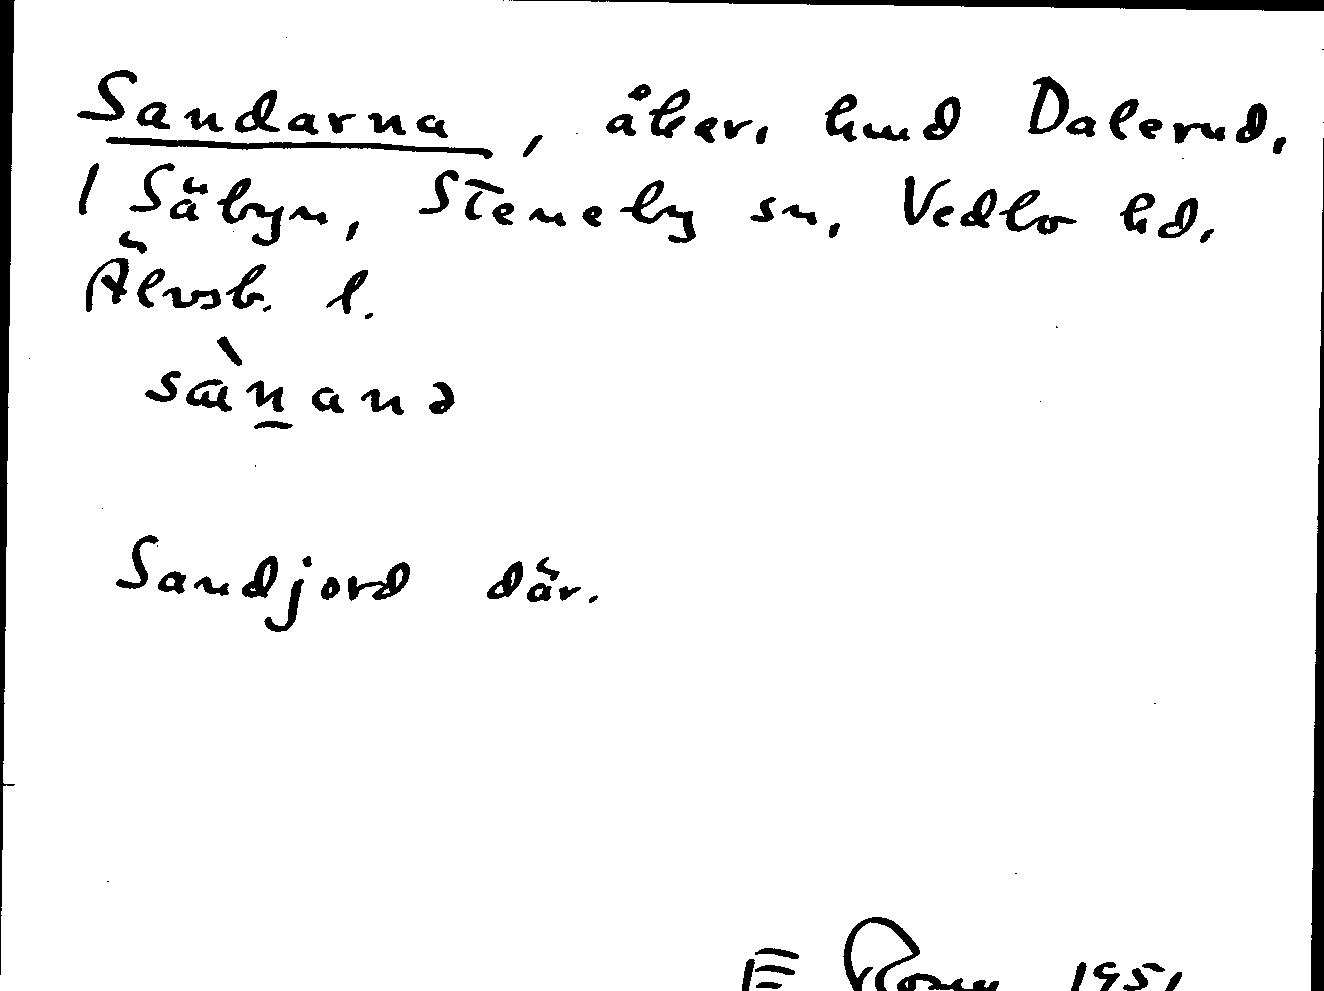 Sandarna, åker, hmd Dalerud,
1 Säbyn, Steneby sn, Vedbo hd,
Älvsb. l.
sæ̀n̲anə
Sandjord där.
E 1951